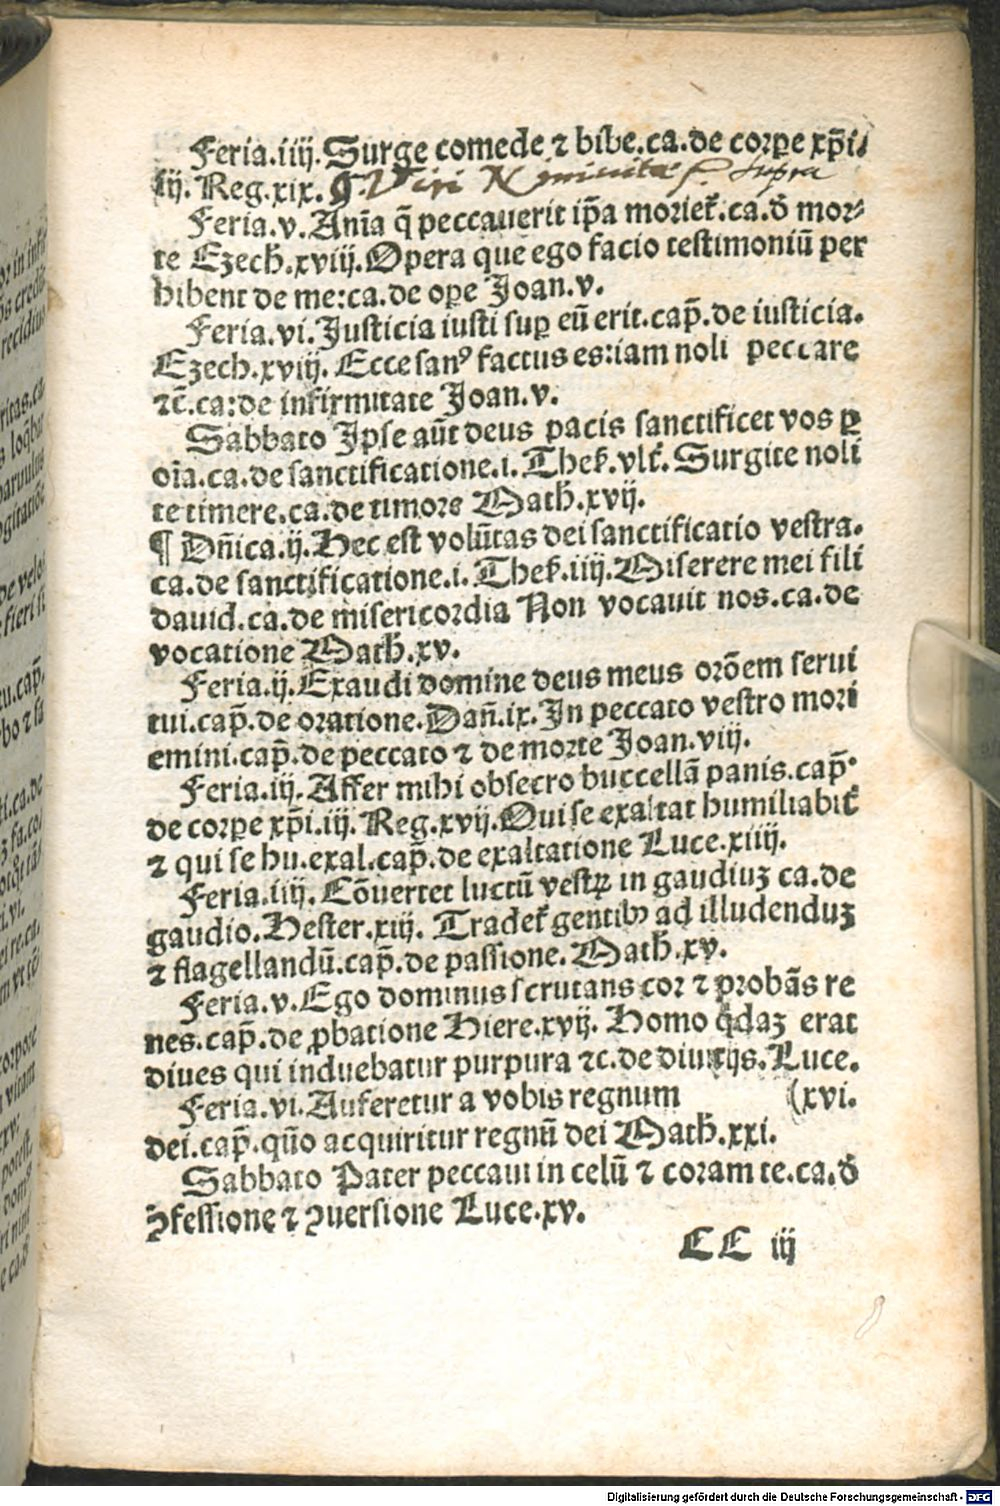 Feria.iiij.Surge comede ⁊ bibe.ca.de corꝑe xp̄i.
iij. Reg.xix. ¶ Viri Niniuitae s. supra
Feria.v.Anīa q̄ peccauerit ip̄a moriet̉.ca.d̄ mor⸗
te Ezech.xviij.Opera que ego facio testimoniū per
hibent de me:ca.de oꝑe Joan.v.
Feria.vi.Justicia iusti suꝑ eū erit.cap̄.de iusticia.
Ezech.xviij. Ecce sanꝰ factus es:iam noli peccare
⁊c̄.ca:de infirmitate Joan.v.
Sabbato Ipse aūt deus pacis sanctificet vos ꝑ
oīa.ca.de sanctificatione.i.Thes̉.vlt̉. Surgite noli
te timere.ca.de timore Math̄.xvij.
¶ Dn̄ica.ij.Hec est volūtas dei sanctificatio vestra.
ca.de sanctificatione.i.Thes̉.iiij.Miserere mei fili
dauid.ca.de misericordia Non vocauit nos.ca.de
vocatione Math̄.xv.
Feria.ij.Exaudi domine deus meus orōem serui
tui.cap̄.de oratione.Dan̄.ix.In peccato vestro mori
emini.cap̄.de peccato ⁊ de morte Joan.viij.
Feria.iij.Affer mihi obsecro buccellā panis.cap̄.
de corꝑe xp̄i.iij. Reg.xvij.Qui se exaltat humiliabit̉
⁊ qui se hu.exal.cap̄.de exaltatione Luce.xiiij.
Feria.iiij. Cōuertet luctū vestꝝ in gaudiuꝫ ca.de
gaudio.Hester.xiij. Tradet̉ gentibꝰ ad illudenduꝫ
⁊ flagellandū.cap̄.de passione. Math̄.xv.
Feria.v.Ego dominus scrutans cor ⁊ probās re
nes.cap̄.de ꝓbatione Hiere.xvij. Homo q̄daꝫ erat
diues qui induebatur purpura ⁊c.de diuitijs.Luce.
Feria.vi.Auferetur a vobis regnum (xvi.
dei.cap̄.quō acquiritur regnū dei Math̄.xxi.
Sabbato Pater peccaui in celū ⁊ coram te.ca.d̄
ꝯfessione ⁊ ꝯuersione Luce.xv.
CC iij
Digitalisierung gefördert durch die Deutsche Forschungsgemeinschaft - DFG